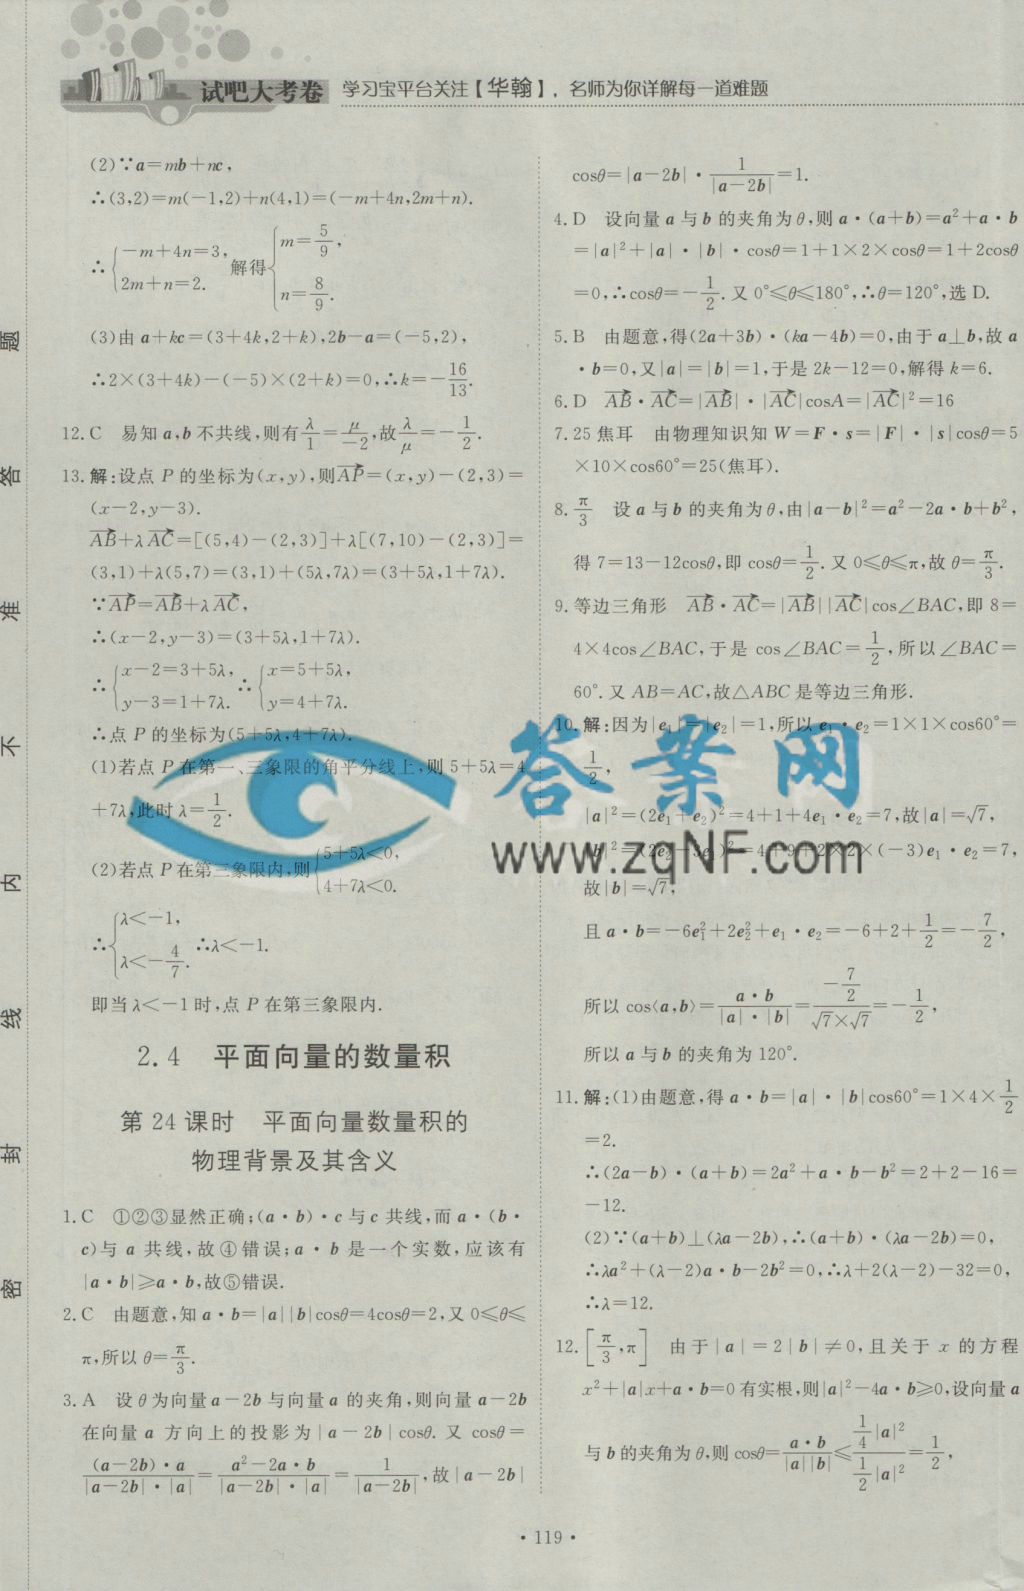 试吧大考卷 学习宝平台关注【华翰】,名师为你详解每一道难题
(2)∵a=mb+nc,
∴(3,2)=m(-1,2)+n(4,1)=(-m+4n,2m+n).
∴{-m+4n=3, 2m+n=2. 解得{m=5/9, n=8/9.
(3)由a+kc=(3+4k,2+k),2b-a=(-5,2),
∴2×(3+4k)-(-5)×(2+k)=0,∴k=-16/13.
12.C 易知a,b不共线,则有λ/1=μ/-2,故λ/μ=-1/2.
13.解:设点P的坐标为(x,y),则AP→=(x,y)-(2,3)=
(x-2,y-3).
AB→+λAC→=[(5,4)-(2,3)]+λ[(7,10)-(2,3)]=
(3,1)+λ(5,7)=(3,1)+(5λ,7λ)=(3+5λ,1+7λ).
∵AP→=AB→+λAC→,
∴(x-2,y-3)=(3+5λ,1+7λ).
∴{x-2=3+5λ, y-3=1+7λ. ∴{x=5+5λ, y=4+7λ.
∴点P的坐标为(5+5λ,4+7λ).
(1)若点P在第一、三象限的角平分线上,则5+5λ=4
+7λ,此时λ=1/2.
(2)若点P在第三象限内,则{5+5λ<0, 4+7λ<0.
∴{λ<-1, λ<-4/7. ∴λ<-1.
即当λ<-1时,点P在第三象限内.
2.4 平面向量的数量积
第24课时 平面向量数量积的
物理背景及其含义
1.C ①②③显然正确;(a·b)·c与c共线,而a·(b·
c)与a共线,故④错误;a·b是一个实数,应该有
|a·b|≥a·b,故⑤错误.
2.C 由题意,知a·b=|a||b|cosθ=4cosθ=2,又0≤θ≤
π,所以θ=π/3.
3.A 设θ为向量a-2b与向量a的夹角,则向量a-2b
在向量a方向上的投影为|a-2b|cosθ.又cosθ=
(a-2b)·a/|a-2b|·|a|=a²-2a·b/|a-2b|·|a|=1/|a-2b|,故|a-2b|
cosθ=|a-2b|·1/|a-2b|=1.
4.D 设向量a与b的夹角为θ,则a·(a+b)=a²+a·b
=|a|²+|a|·|b|·cosθ=1+1×2×cosθ=1+2cosθ
=0,∴cosθ=-1/2.又0°≤θ≤180°,∴θ=120°,选D.
5.B 由题意,得(2a+3b)·(ka-4b)=0,由于a⊥b,故a
·b=0,又|a|=|b|=1,于是2k-12=0,解得k=6.
6.D AB→·AC→=|AB→|·|AC→|cosA=|AC→|²=16
7.25焦耳 由物理知识知W=F·s=|F|·|s|cosθ=5
×10×cos60°=25(焦耳).
8.π/3 设a与b的夹角为θ,由|a-b|²=a²-2a·b+b²,
得7=13-12cosθ,即cosθ=1/2.又0≤θ≤π,故θ=π/3.
9.等边三角形 AB→·AC→=|AB→||AC→|cos∠BAC,即8=
4×4cos∠BAC,于是cos∠BAC=1/2,所以∠BAC=
60°.又AB=AC,故△ABC是等边三角形.
10.解:因为|e₁|=|e₂|=1,所以e₁·e₂=1×1×cos60°=
1/2,
|a|²=(2e₁+e₂)²=4+1+4e₁·e₂=7,故|a|=√7,
|b|²=(2e₂-3e₁)²=4+9+2×2×(-3)e₁·e₂=7,
故|b|=√7,
且a·b=-6e₁²+2e₂²+e₁·e₂=-6+2+1/2=-7/2,
所以cos⟨a,b⟩=a·b/|a|·|b|=-7/2/√7×√7=-1/2,
所以a与b的夹角为120°.
11.解:(1)由题意,得a·b=|a|·|b|cos60°=1×4×1/2
=2.
∴(2a-b)·(a+b)=2a²+a·b-b²=2+2-16=
-12.
(2)∵(a+b)⊥(λa-2b),∴(a+b)·(λa-2b)=0,
∴λa²+(λ-2)a·b-2b²=0,∴λ+2(λ-2)-32=0,
∴λ=12.
12.[π/3,π] 由于|a|=2|b|≠0,且关于x的方程
x²+|a|x+a·b=0有实根,则|a|²-4a·b≥0,设向量a
与b的夹角为θ,则cosθ=a·b/|a||b|≤1/4|a|²/1/2|a|²=1/2,
·119·
题
答
准
不
内
线
封
密
答案网
www.zqNF.com